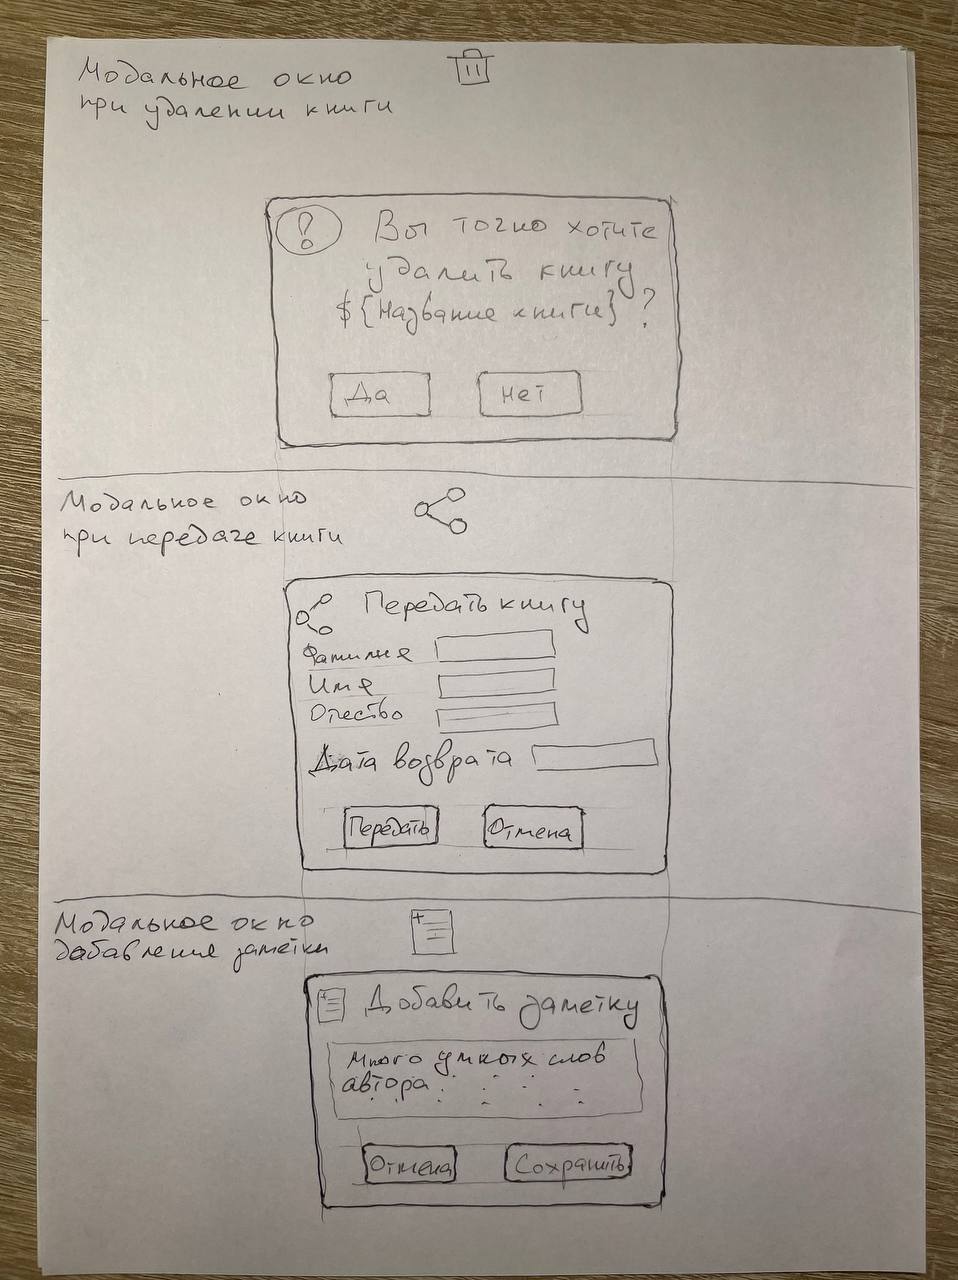 Модальное окно
при удалении книги
Вы точно хотите
удалить книгу
${Название книги} ?
Да
Нет
Модальное окно
при передаче книги
Передать книгу
Фамилия
Имя
Отчество
Дата возврата
Передать
Отмена
Модальное окно
дабавление заметки
Добавить заметку
Много умных слов
автора
Отмена
Сохранить